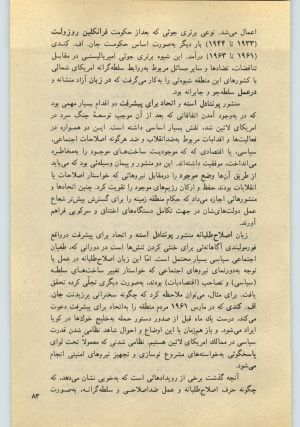 اعمال می‌شد. نوعی برتری جوئی که بعداز حکومت فرانکلین روزولت
(۱۹۳۳ تا ۱۹۴۴) بار دیگر به‌صورت اساس حکومت جان. اف. کندی
(۱۹۶۱ تا ۱۹۶۳) درآمد. این شیوه برتری جوئی امپریالیستی در مقابل
تناقضات، تضادها و سایر مسائل مربوط به‌روابط سلطه‌گرانه امریکای شمالی
با کشورهای این منطقه شیوه‌ئی را به‌کار می‌گرفت که در زبان آزاد منشانه و
درعمل سلطه‌جو و جابرانه بود.
منشور پونتادل استه و اتحاد برای پیشرفت دو اقدام بسیار مهمی بود
که در به‌وجود آمدن اتفاقاتی که بعد از آن موجب توسعهٔ جنگ سرد در
امریکای لاتین شد، نقش بسیار اساسی داشته است. این دو همواره در
فعالیت‌ها و اقدامات مربوط به‌ضدانقلاب و ضد هرگونه اصلاحات اجتماعی،
سیاسی، یا اقتصادی که که موجودیت ساخت‌های موجود را به‌مخاطره
می‌انداخت، موفقیت داشته‌اند. این دو منشور و پیمان وسیله‌ئی بود که می‌باید
از طریق آن‌ها وضع موجود را درمقابل نیروهائی که خواستار اصلاحات یا
انقلابات بودند حفظ و ارکان رژیم‌های موجود را تقویت کرد. چنین اتحادها و
منشورهائی اجازه می‌داد که حکام منطقه زمینه را برای گسترش بیش‌تر شعاع
عمل دولت‌های‌شان در جهت تکامل دستگاه‌های اختناق و سرکوبی فراهم
آورند.
زبان اصلاح‌طلبانه منشور پونتادل استه و اتحاد برای پیشرفت درواقع
فورمولبندی آگاهانه‌ئی برای خنثی کردن تنش‌ها است در دورانی که، طغیان
اجتماعی سیاسی بسیار محتمل است. امّا این زبان اصلاح‌طلبانه در عمل با
توجه به‌دورنمای نیروهای اجتماعی که خواستار تغییر ساخت‌های سلطه
(سیاسی) و تصاحب (اقتصادیات) بودند، به‌صورت دیگری تجلّی کرده تحقق
یافت. برای مثال، می‌توان ملاحظه کرد که چگونه سخنرانی پرزیدنت جان.
اف. کندی که در مارس ۱۹۶۱ مردم منطقه را به‌اتحاد برای پیشرفت دعوت
می‌کند، درست یك ماه قبل از صدور دستور حمله به‌خلیج خوک‌ها در کوبا
ایراد می‌شود. و باز هم‌زمان با این اوضاع و احوال شاهد نظامی شدن قدرت
سیاسی در ممالك امریکای لاتین هستیم. نظامی شدنی که معمولا تحت لوای
پاسخگوئی به‌خواسته‌های مشروع نوسازی و تجهیز نیروهای امنیتی انجام
می‌شود.
آنچه گذشت برخی از رویدادهائی است که به‌خوبی نشان می‌دهد، که
چگونه حرف اصلاح‌طلبانه و عمل ضداصلاحی و سلطه‌گرانه، به‌صورت
۸۳